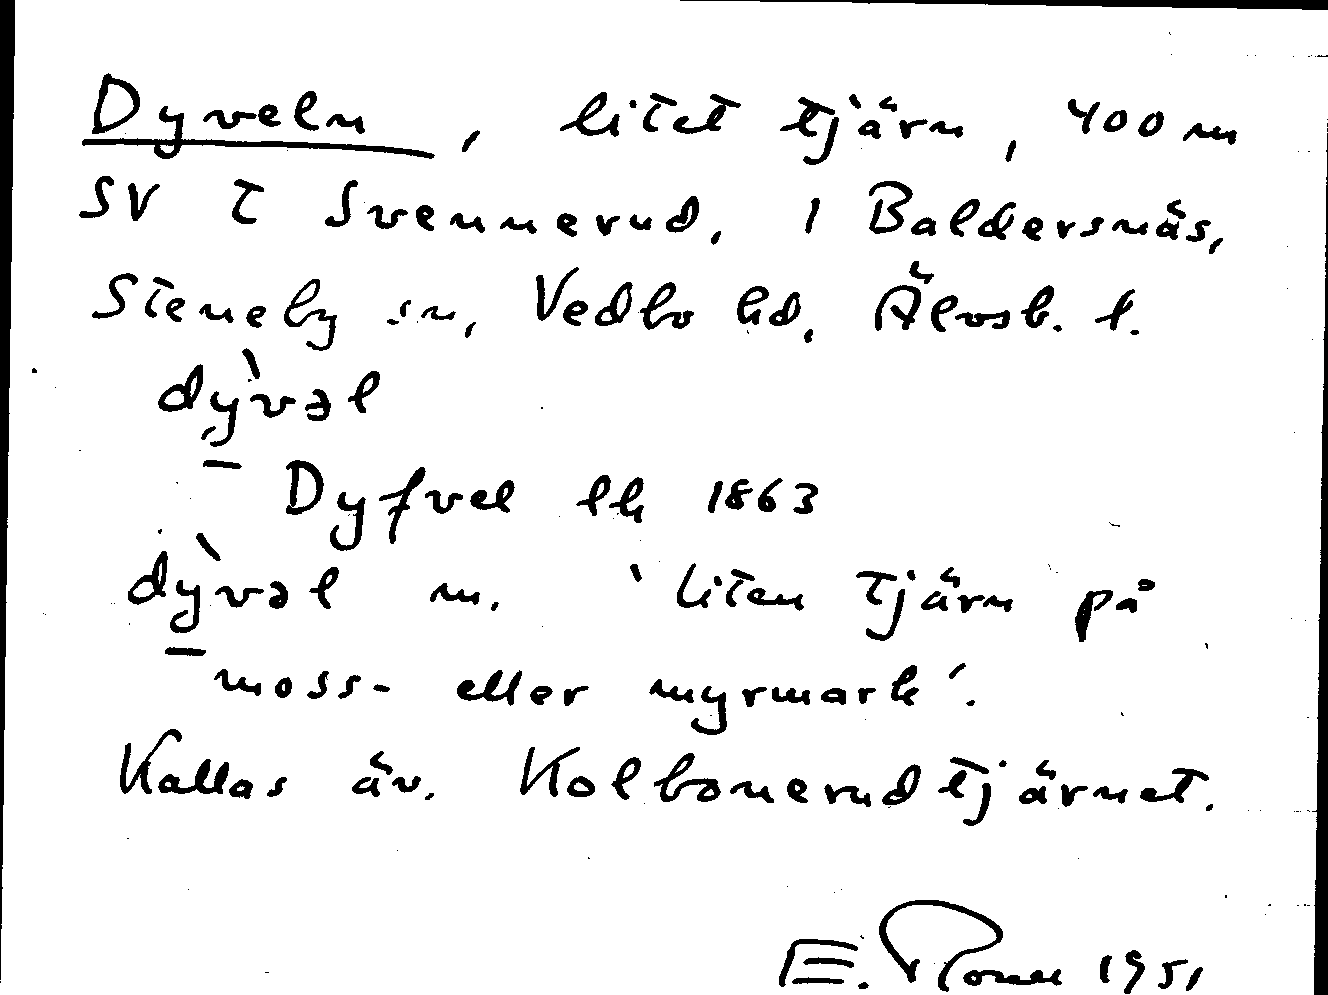 Dyveln, litet tjärn, 400 m
SV t Svennerud, 1 Baldersnäs,
Steneby sn, Vedbo hd, Älvsb. l.
dỳvəl
Dyfvel lk 1863
dỳvəl m. 'liten tjärn på
moss- eller myrmark'.
Kallas äv. Kolbonerudtjärnet.
E. 1951